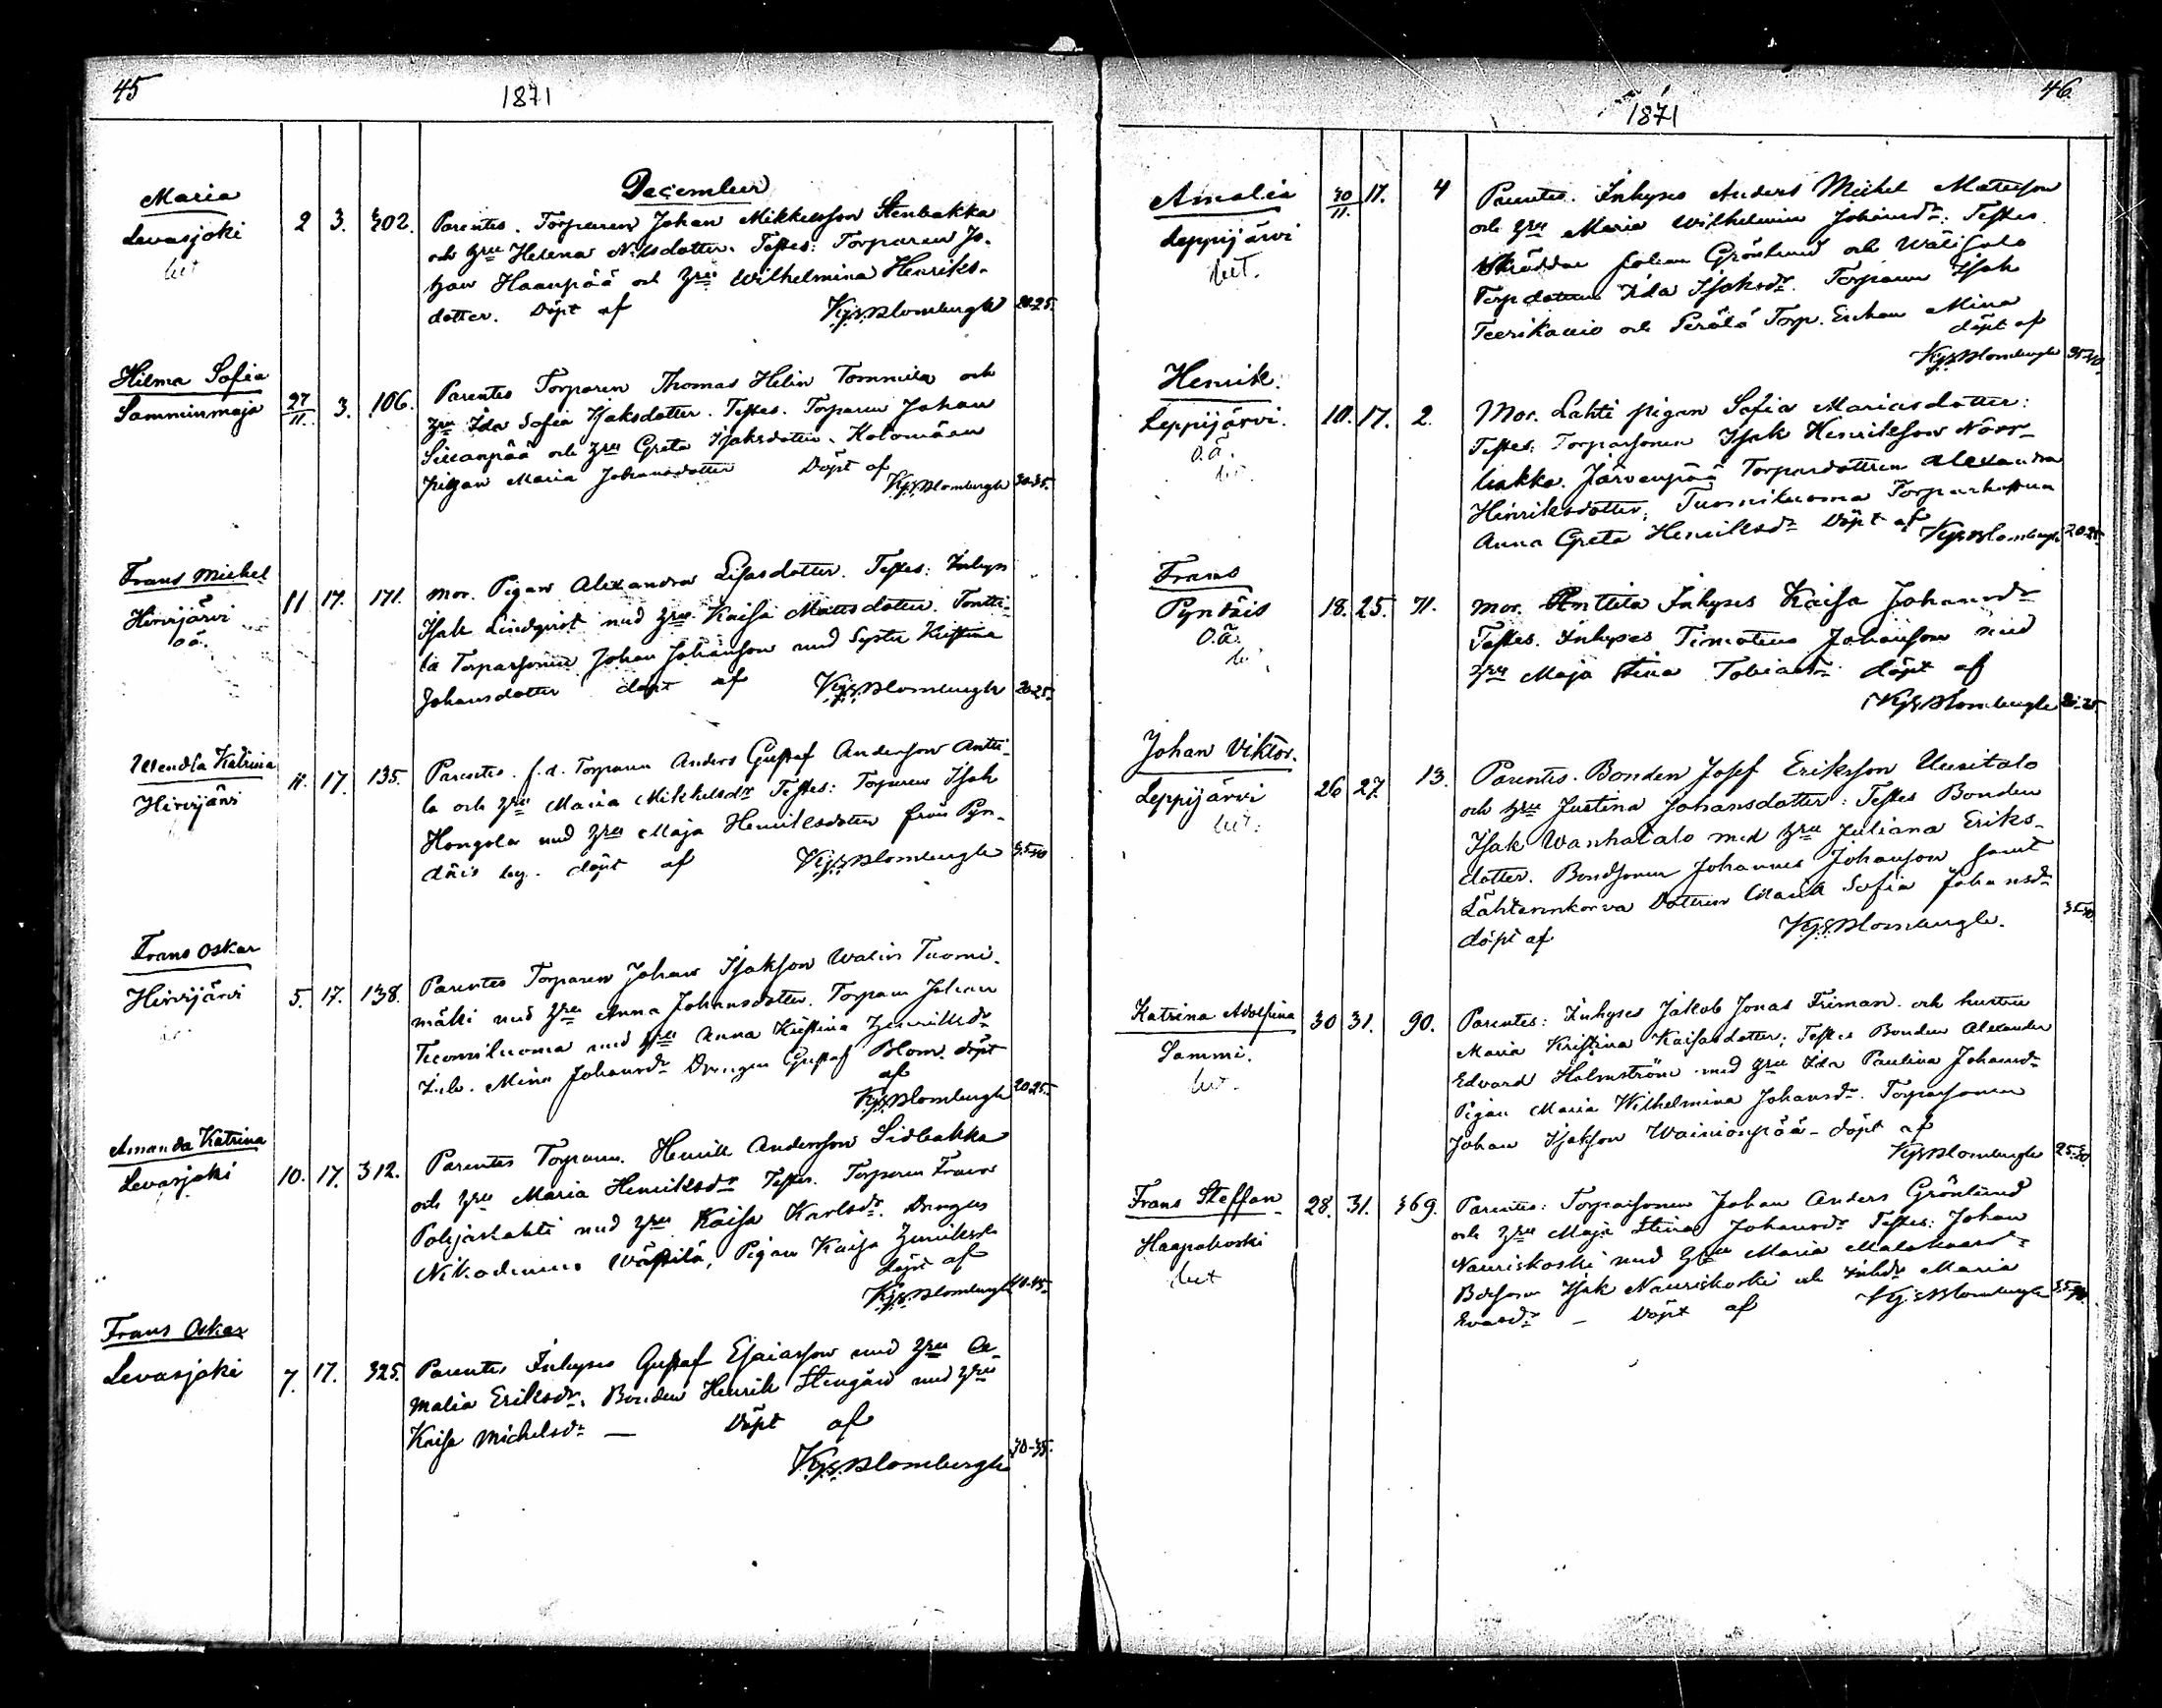 45
1871
December
Maria
Levasjoki
2 3. 302.
Parentes. Torparen Johan Mikkelsson Stenbakka
och hru Helena Nilsdotter. Testes: Torparen Jo-
han Haanpää och hru Wilhelmina Henriks-
dotter. Döpt af Kjs Blombergh 20-25.
Hilma Sofia
Samminmaja
27/11. 3. 106.
Parentes Torparen Thomas Helin Tommila och
hru Ida Sofia Isaksdotter. Testes. Torparen Johan
och hru Greta Isaksdotter. Kolomäen
pigan Maria Johansdotter Döpt af
Kjs Blombergh 30-35.
Frans Michel
Hirvijärvi
oä.
11 17. 171.
Mor. Pigan Alexandra Lisasdotter. Testes: Inhys
Isak Lindqvist med hru Kaisa Mattsdotter. Tontti-
la Torparsonen Johan Johansson med Syster Kristina
Johansdotter döpt af Kjs Blombergh 20-25.
Wendla Katrina
Hirvijärvi
11. 17. 135.
Parentes. f.d. Torparen Anders Gustaf Andersson Antti-
la och hru Maria Mikkelsdr Testes: Torparen Isak
Hongola med hru Maja Henriksdotter från Pyn-
däis by. döpt af Kjs Blombergh 35-40
Frans Oskar
Hirvijärvi
5. 17. 138.
Parentes Torparen Johan Isaksson Walin Tuomi-
mäki med hru Anna Johansdotter. Torparen Johan
Tuomiluoma med hru Anna Kristina Henriksdr
Inh. Mina Johansdr Drengen Gustaf Blom. döpt
af
Kjs Blombergh 20-25.
Amanda Katrina
Levasjoki
10. 17. 312.
Parentes Torparen. Henrik Andersson Sidbakka
och hru Maria Henriksdr Testes. Torparen Frans
Pohjaslahti med hru Kaisa Karlsdr. Drengen
Nikodemus Wästilä, Pigan Kaisa Henriksdr
döpt af
Kjs Blombergh 40-45.
Frans Oskar
Levasjoki
7. 17. 325.
Parentes Inhyses Gustaf Esaiasson med hru A-
malia Eriksdr. Bonden Henrik Stengård med hru
Kaisa Michelsdr — Döpt af
Kjs Blombergh 30-35.
46.
1871
Amalia
Leppijärvi
30/11. 17. 4
Parentes. Inhyses Anders Michel Matsson
och hru Maria Wilhelmina Johansdr. Testes
Skräddar Johan Grönlund och Wälisalo
Torpdottern Ida Isaksdr. Torparen Isak
Teerikallio och Perälä Torp. Enkan Mina
döpt af
Kjs Blombergh 35-40.
Henrik.
Leppijärvi.
O.ä.
10. 17. 2.
Mor. Lahti pigan Sofia Mariasdotter:
Testes: Torparsonen Isak Henriksson Norr-
bakka. Järvenpää Torparedottren Alexandra
Henriksdotter, Tuomiluoma Torparhustrun
Anna Greta Henriksdr Döpt af Kjs Blombergh 20-25.
Frans
Pyndäis
O.ä.
18. 25. 71.
Mor. Anttila Inhyses Kaisa Johansdr
Testes. Inhyses Timoteus Johansson med
hru Maja Stina Tobiasdr döpt af
Kjs Blombergh
Johan Viktor.
Leppijärvi
26 27. 13.
Parentes. Bonden Josef Eriksson Uusitalo
och hru Justina Johansdotter: Testes Bonden
Isak Wanhatalo med hru Juliana Eriks-
dotter. Bondsonen Johannes Johansson samt
Lähteenkorva Dottren Maria Sofia Johansdr
döpt af Kjs Blombergh. 35-40.
Katrina Adolfina
Sammi.
30 31. 90.
Parentes: Inhyses Jakob Jonas Friman. och hustru
Maria Kristina Kaisasdotter; Testes Bonden Alexander
Edvard Holmström med hru Ida Paulina Johansdr
Pigan Maria Wilhelmina Johansdr. Torparsonen
Johan Isaksson Wainionpää - döpt af
Kjs Blombergh 25-30.
Frans Steffan
Haapakoski
28. 31. 369.
Parentes: Torparsonen Johan Anders Grönlund
och hru Maja Stina Johansdr Testes: Johan
Nauriskoski med hru Maria
Isak Nauriskoski och Maria
Evasdr — Döpt af Kjs Blombergh 35-40.